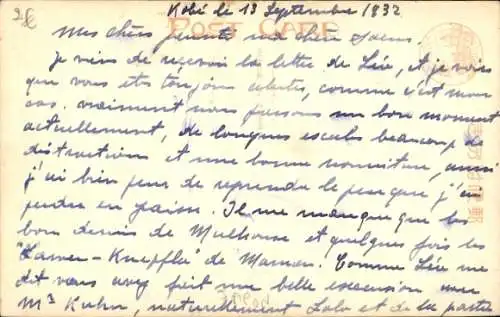 Kobé le 13 Septembre 1932
POST CARD
Mes chers parents ma chère Soeur.
Je viens de recevoir la lettre de Lée, et je vois
que vous êtes toujours alertes, comme c'est mon
cas. vraiment nous passons un bon moment
actuellement, de longues escales beaucoup de
distractions et une bonne nourriture, aussi
j'ai bien peur de reprendre le peu que j'ai
perdu en poids. Il me manque que les
bon demis de Mulhouse et quelques fois les
"Lawer-Knepfla" de Maman. Comme Lée me
dit vous avez fait une belle excursion avec
Mr Kuhn, naturellement Lolo et de la partie